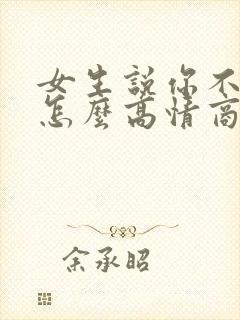 女生說你不
怎麼高情商
余承昭